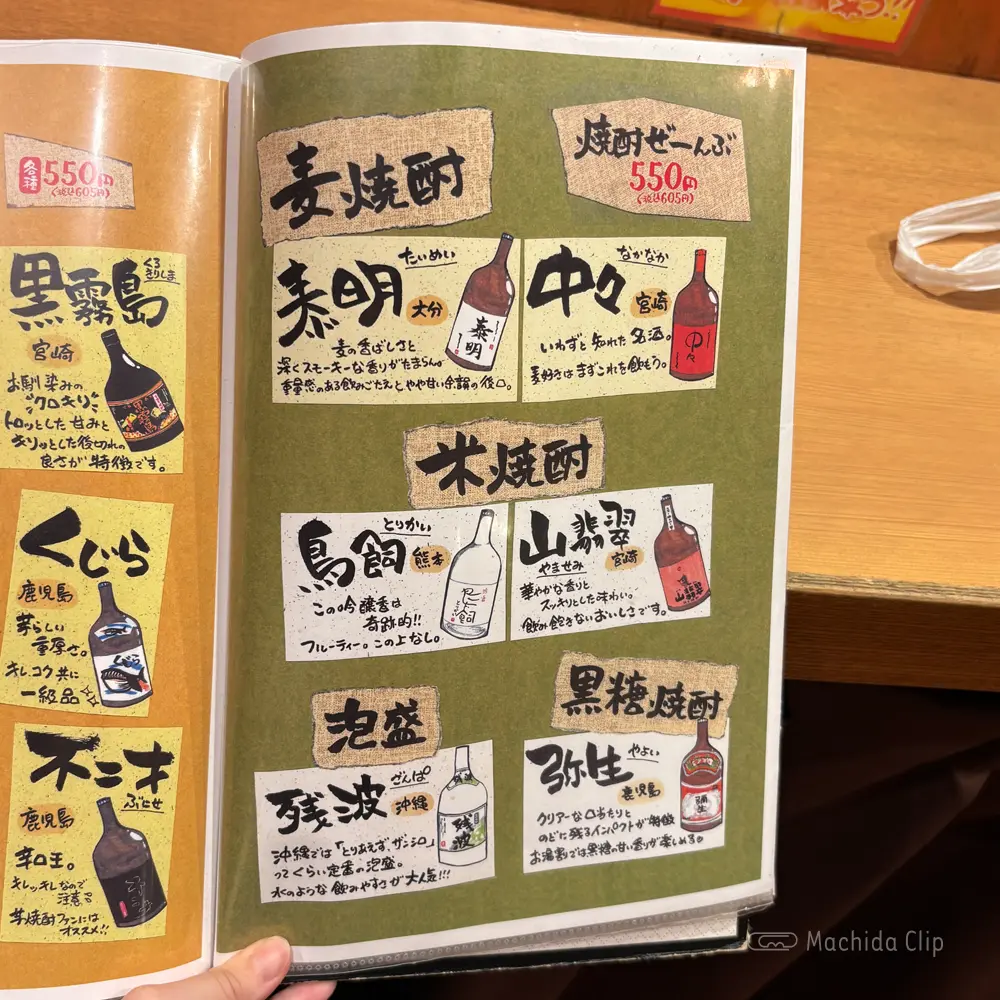 各種 550円
(税込605円)
黒霧島
くろきりしま
宮崎
お馴染みの
"クロキリ"
トロッとした甘みと
キリッとした後切れの
良さが特徴です。
くじら
鹿児島
芋らしい
重厚さ。
キレ、コク共に
一級品
くじら
不二才
ぶにせ
鹿児島
辛口王。
キレッキレなので
注意
芋焼酎ファンには
オススメ!!
麦焼酎
焼酎ぜーんぶ
550円
(税込605円)
泰明
たいめい
大分
麦の香ばしさと
深くスモーキーな香りがたまらん。
重量感のある飲みごたえとやや甘い余韻の後口。
泰明
中々
なかなか
宮崎
いわずと知れた名酒。
麦好きはまずこれを飲もう。
中々
米焼酎
鳥飼
とりかい
熊本
この吟醸香は
奇跡的!!
フルーティー。この上なし。
鳥飼
山翡翠
やませみ
宮崎
華やかな香りと
スッキリとした味わい。
飲み飽きないおいしさです。
山翡翠
泡盛
残波
ざんぱ
沖縄
沖縄では「とりあえず、ザンシロ」
ってくらい定番の泡盛。
水のような飲みやすさが大人気!!!
残波
黒糖焼酎
弥生
やよい
鹿児島
クリアーな口当たりと
のどに残るインパクトが特徴
お湯割では黒糖の甘い香りが楽しめる。
弥生
Machida Clip